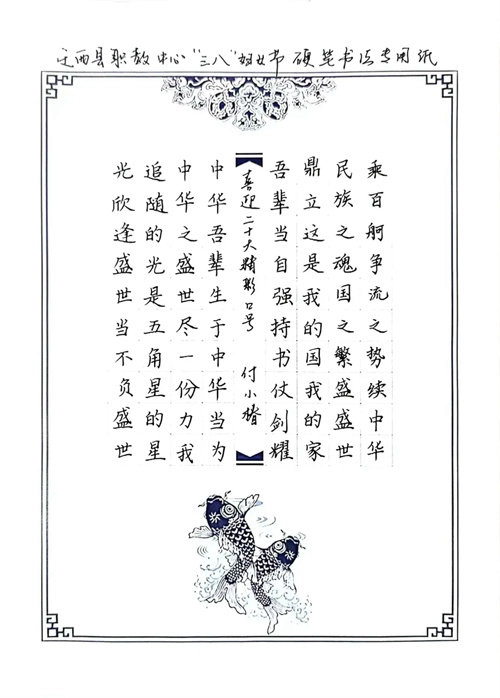 迁西县职教中心“三八”妇女节 硬笔书法专用纸
乘百舸争流之势续中华
民族之魂国之繁盛盛世
鼎立这是我的国我的家
吾辈当自强持书仗剑耀
喜迎二十大精彩口号 付小椿
中华吾辈生于中华当为
中华之盛世尽一份力我
追随的光是五角星的星
光欣逢盛世当不负盛世